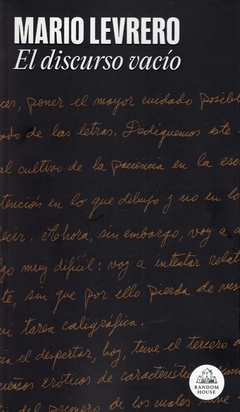 MARIO LEVRERO
El discurso vacío
ces, poner el mayor cuidado posibl
ado de las letras. Dediquemos este
al cultivo de la paciencia en la esc
tención en lo que dibujo y no en lo
decir. Ahora, sin embargo, voy a a
go muy difícil: voy a intentar relat
te, sin que por ello pierda de vus
mi tarea caligráfica.
el despertar, hoy, tuve el tercero
ueños eróticos de característic
primero de los cuales
RANDOM
HOUSE